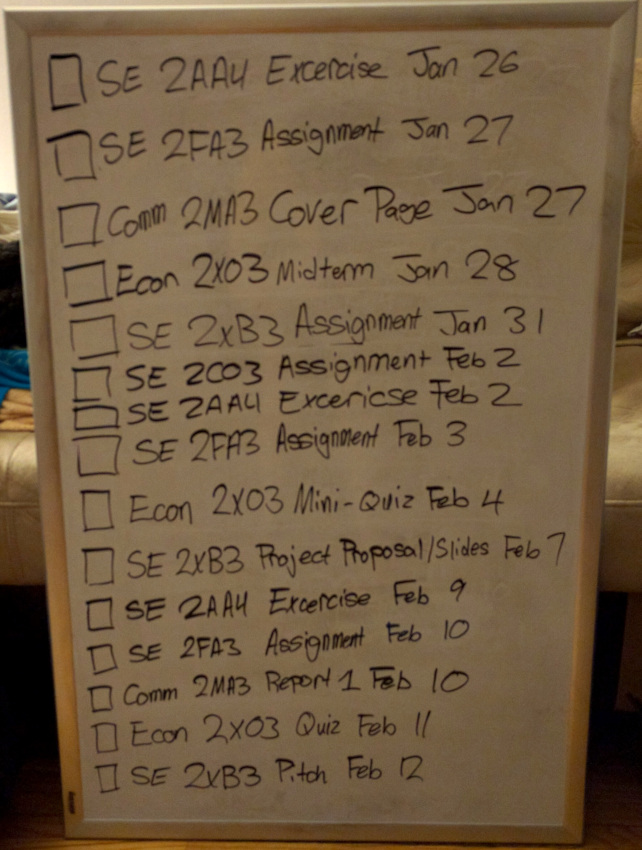 SE 2AA4 Excercise Jan 26
SE 2FA3 Assignment Jan 27
Comm 2MA3 Cover Page Jan 27
Econ 2X03 Midterm Jan 28
SE 2XB3 Assignment Jan 31
SE 2C03 Assignment Feb 2
SE 2AA4 Excericse Feb 2
SE 2FA3 Assignment Feb 3
Econ 2X03 Mini-Quiz Feb 4
SE 2XB3 Project Proposal/Slides Feb 7
SE 2AA4 Excercise Feb 9
SE 2FA3 Assignment Feb 10
Comm 2MA3 Report 1 Feb 10
Econ 2X03 Quiz Feb 11
SE 2XB3 Pitch Feb 12